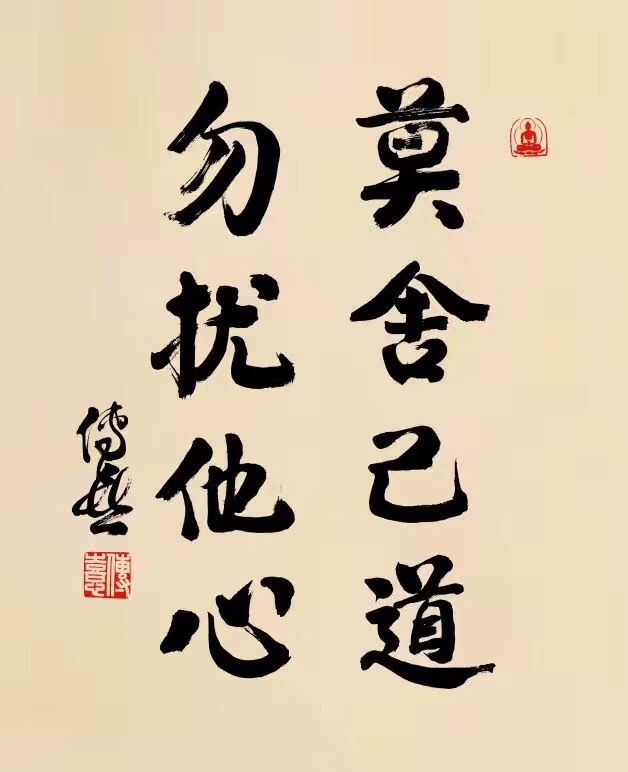 莫舍己道
勿扰他心
傳喜
傳喜